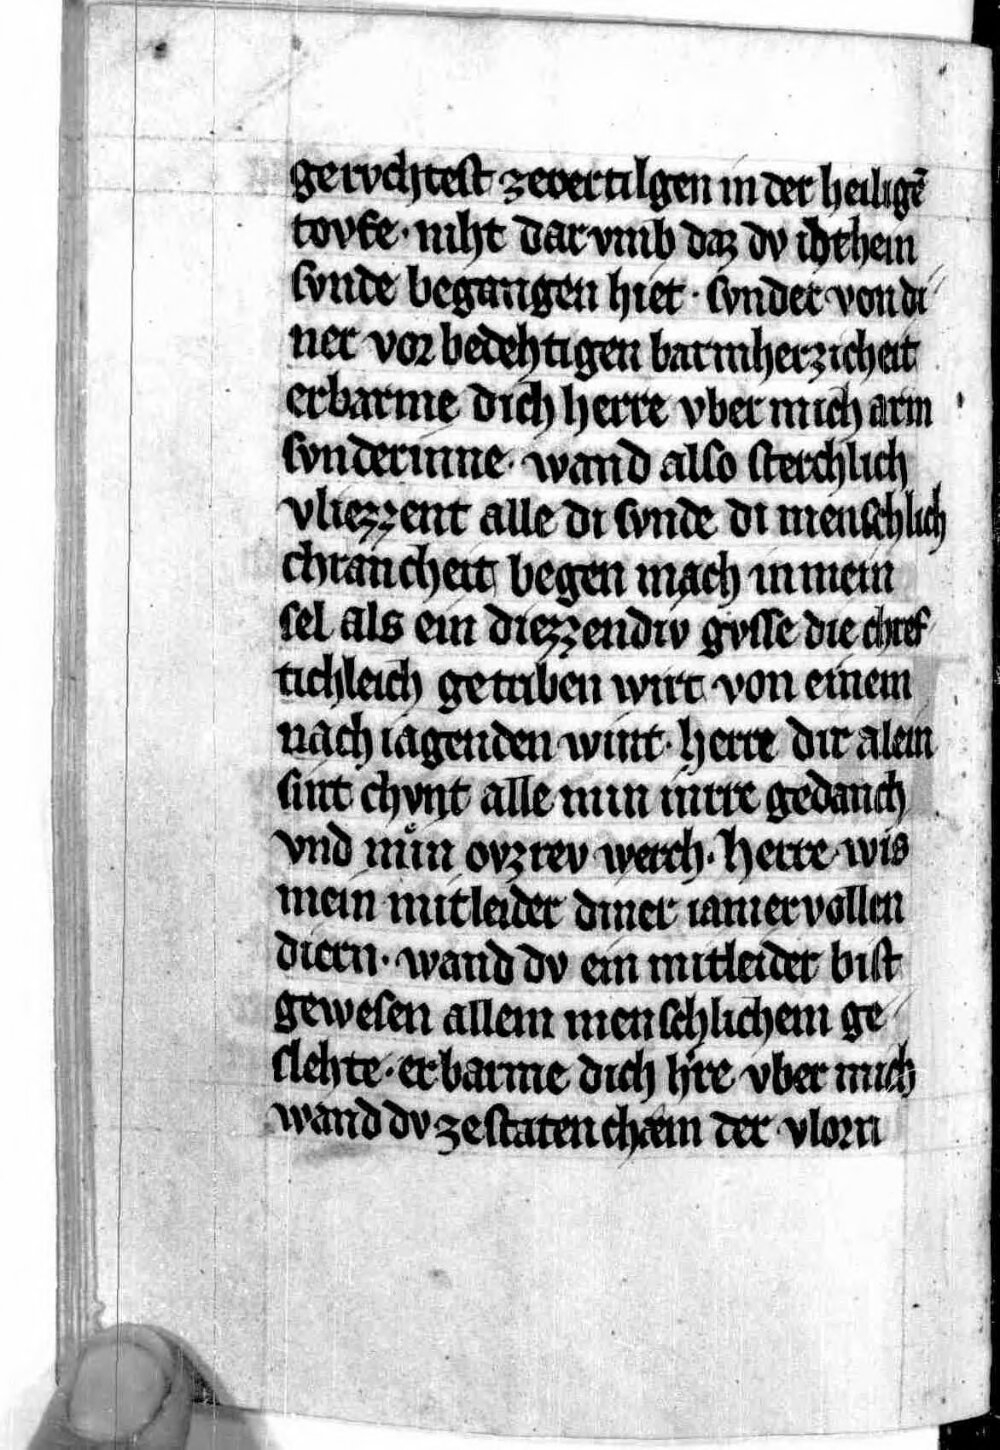 gervchtest zevertilgen in der heiligē
tovfe · niht dar vmb daz dv ihthein
svnde begangen hiet · svnder von di
ner vor bedehtigen barmherzicheit
erbarme dich herre vber mich arm
svnderinne · wand also sterchlich
vliezzent alle di svnde di menschlich
chrancheit begen mach in mein
sel als ein diezzendiv gvsse die chref
tichleich getriben wirt von einem
nach iagenden wint · herre dir alein
sint chvnt alle min inrre gedanch
vnd mın ovzrev werch · herre wis
mein mitleider diner iamervollen
diern · wand dv ein mitleider bist
gewesen allem menschlichem ge
slehte · erbarme dich hre vber mich
wand dv ze staten chæm der vlorn